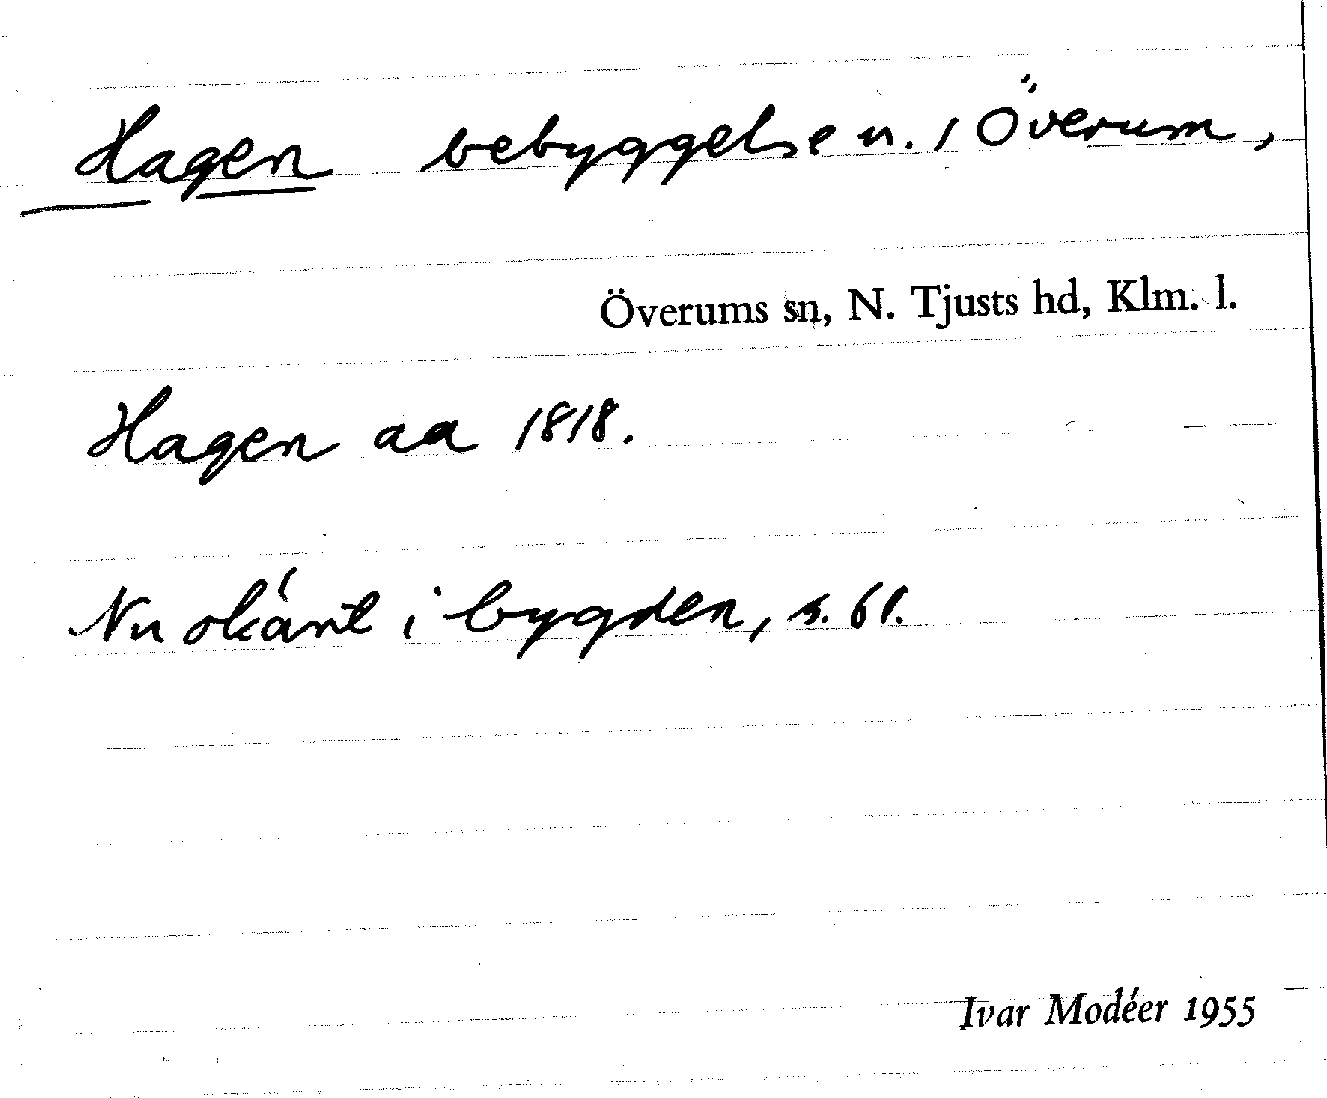 Hagen bebyggelse u. / Överum,
Överums sn, N. Tjusts hd, Klm. l.
Hagen aa 1818.
Nu okänt i bygden, s. 61.
Ivar Modéer 1955